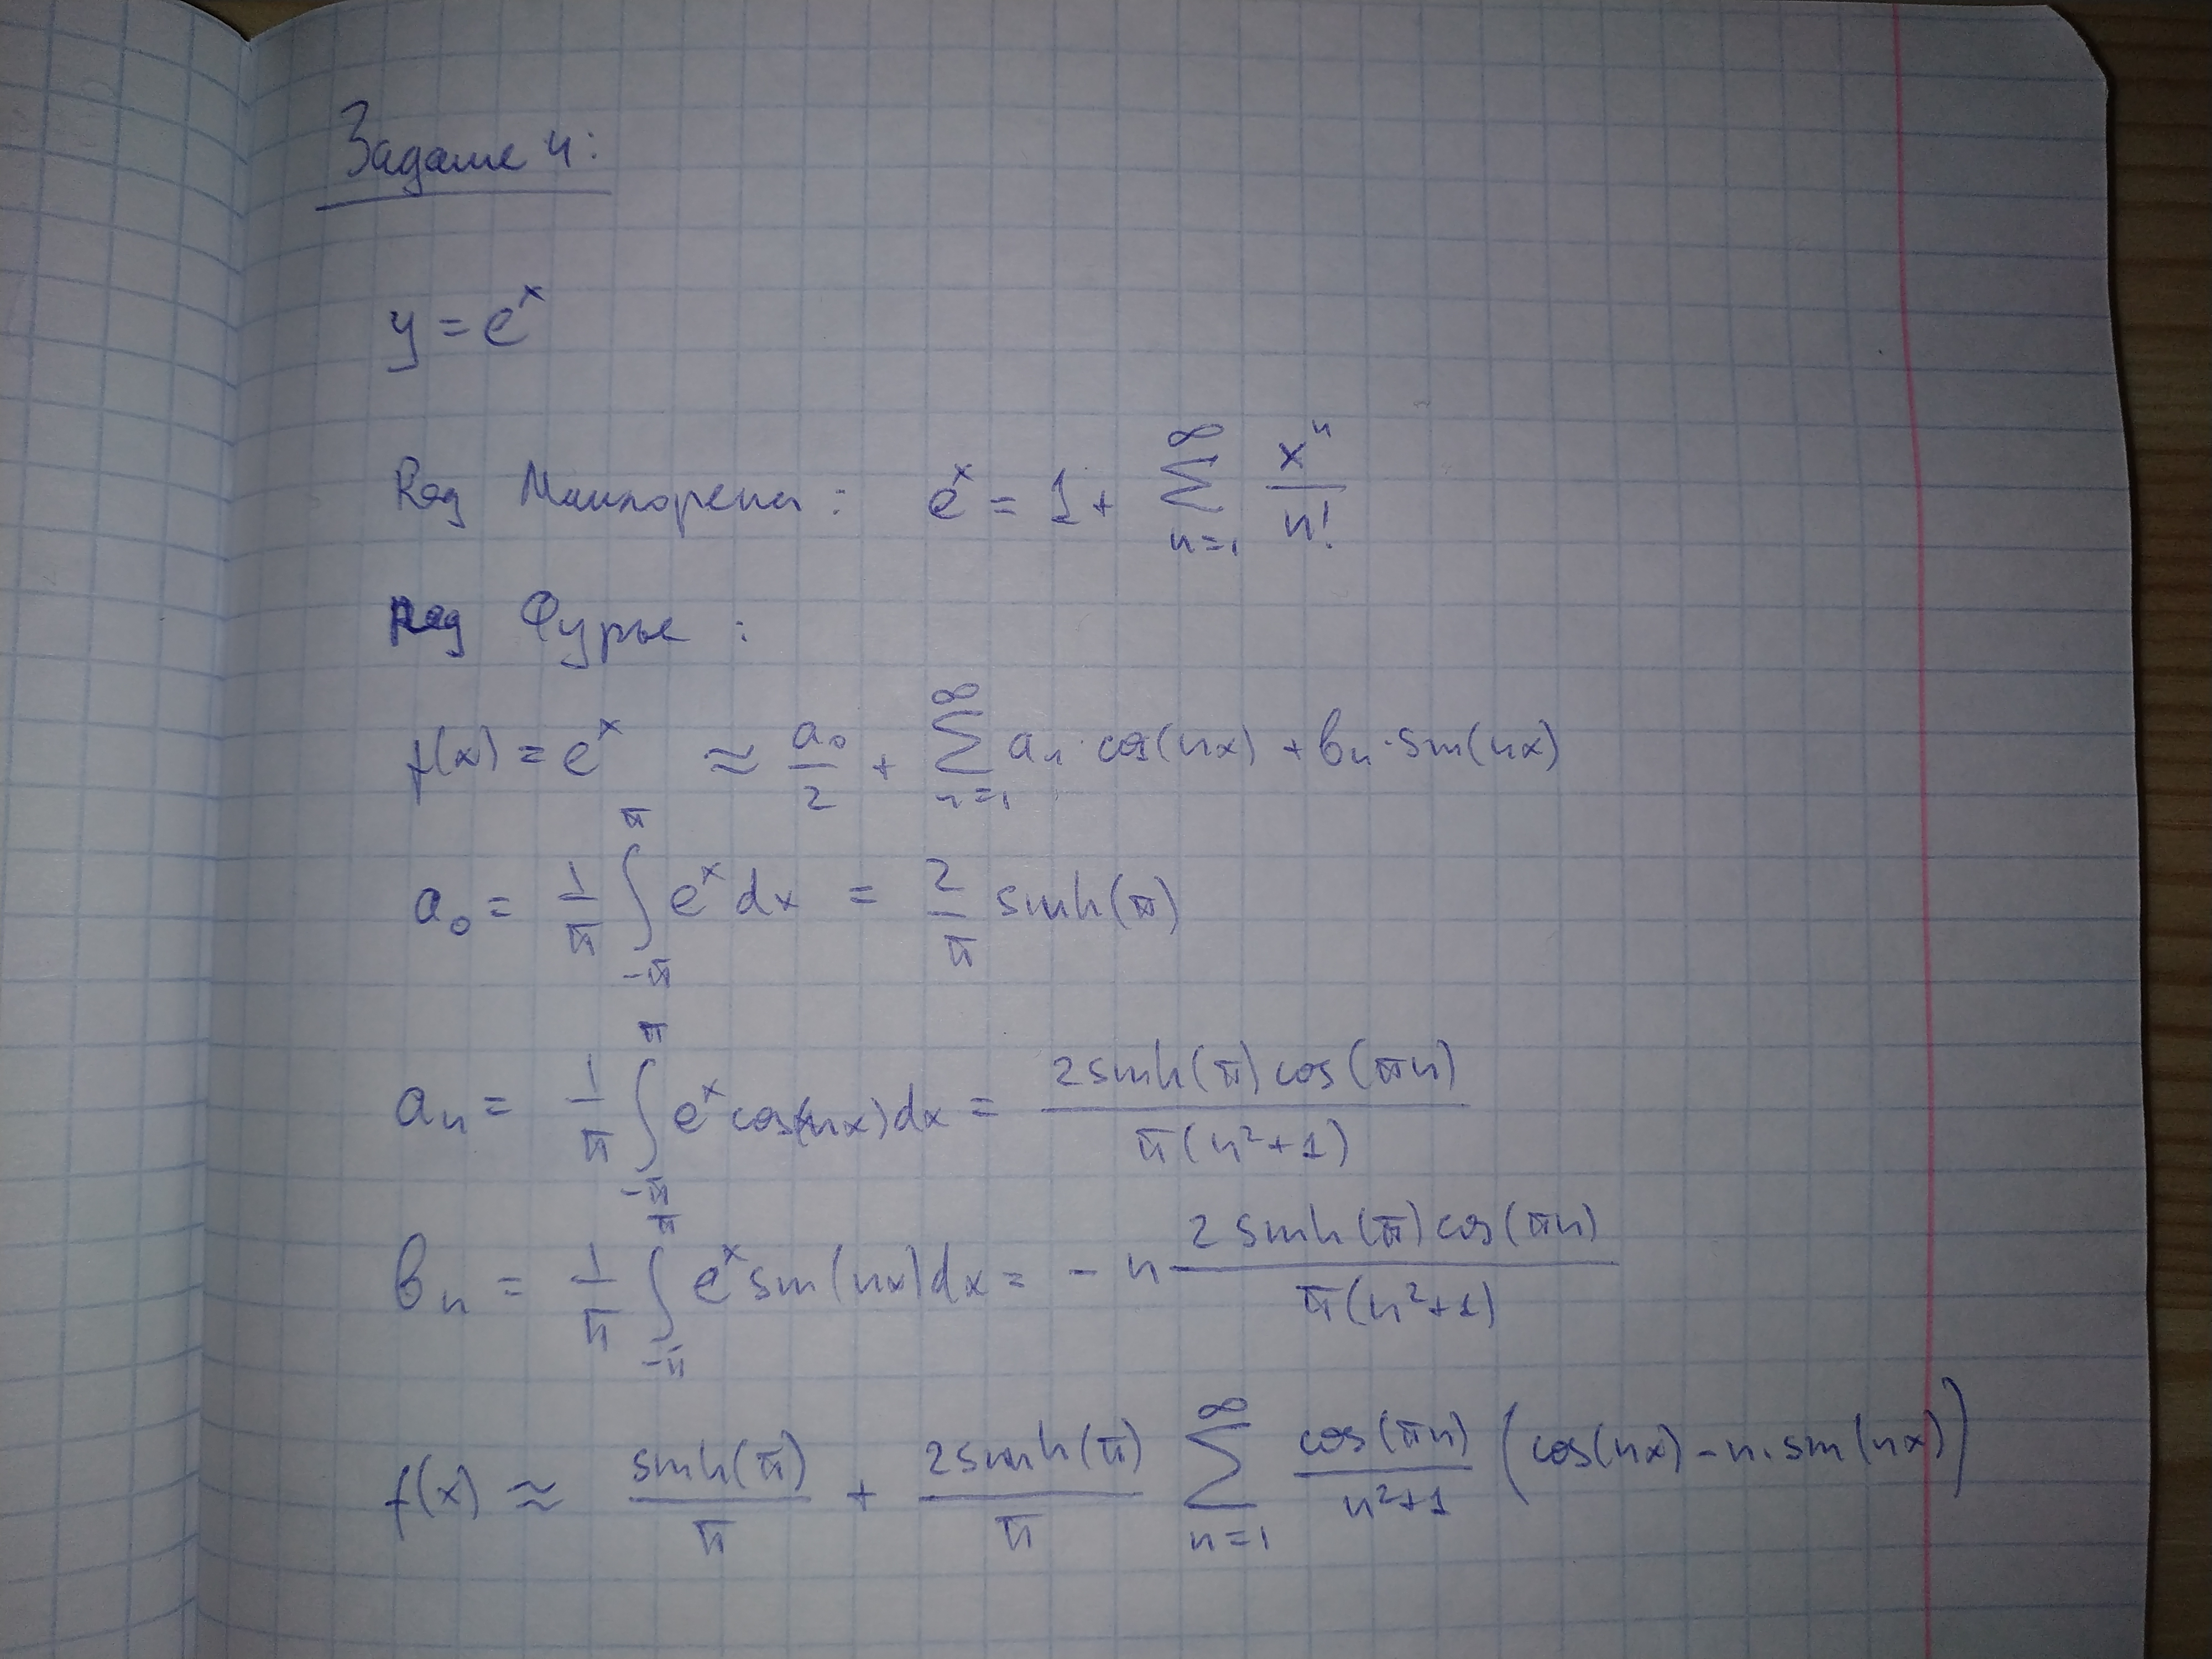 Задание 4:
y = e^x
Ряд Маклорена: e^x = 1 + ∑_{n=1}^{∞} x^n / n!
Ряд Фурье :
f(x) = e^x ≈ a₀/2 + ∑_{n=1}^{∞} aₙ · cos(nx) + bₙ · sin(nx)
a₀ = 1/π ∫_{-π}^{π} e^x dx = 2/π sinh(π)
aₙ = 1/π ∫_{-π}^{π} e^x cos(nx) dx = 2 sinh(π) cos(πn) / π(n²+1)
bₙ = 1/π ∫_{-π}^{π} e^x sin(nx) dx = - n 2 sinh(π) cos(πn) / π(n²+1)
f(x) ≈ sinh(π)/π + 2 sinh(π)/π ∑_{n=1}^{∞} cos(πn)/(n²+1) (cos(nx) - n · sin(nx))